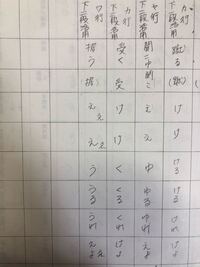 カ行下一段活用 蹴る (蹴) け け ける ける けれ けよ
ヤ行下二段活用 聞こゆ 聞こ え え ゆ ゆる ゆれ えよ
カ行下二段活用 受く 受 け け く くる くれ けよ
ワ行下二段活用 据う (据) え え う うる うれ えよ